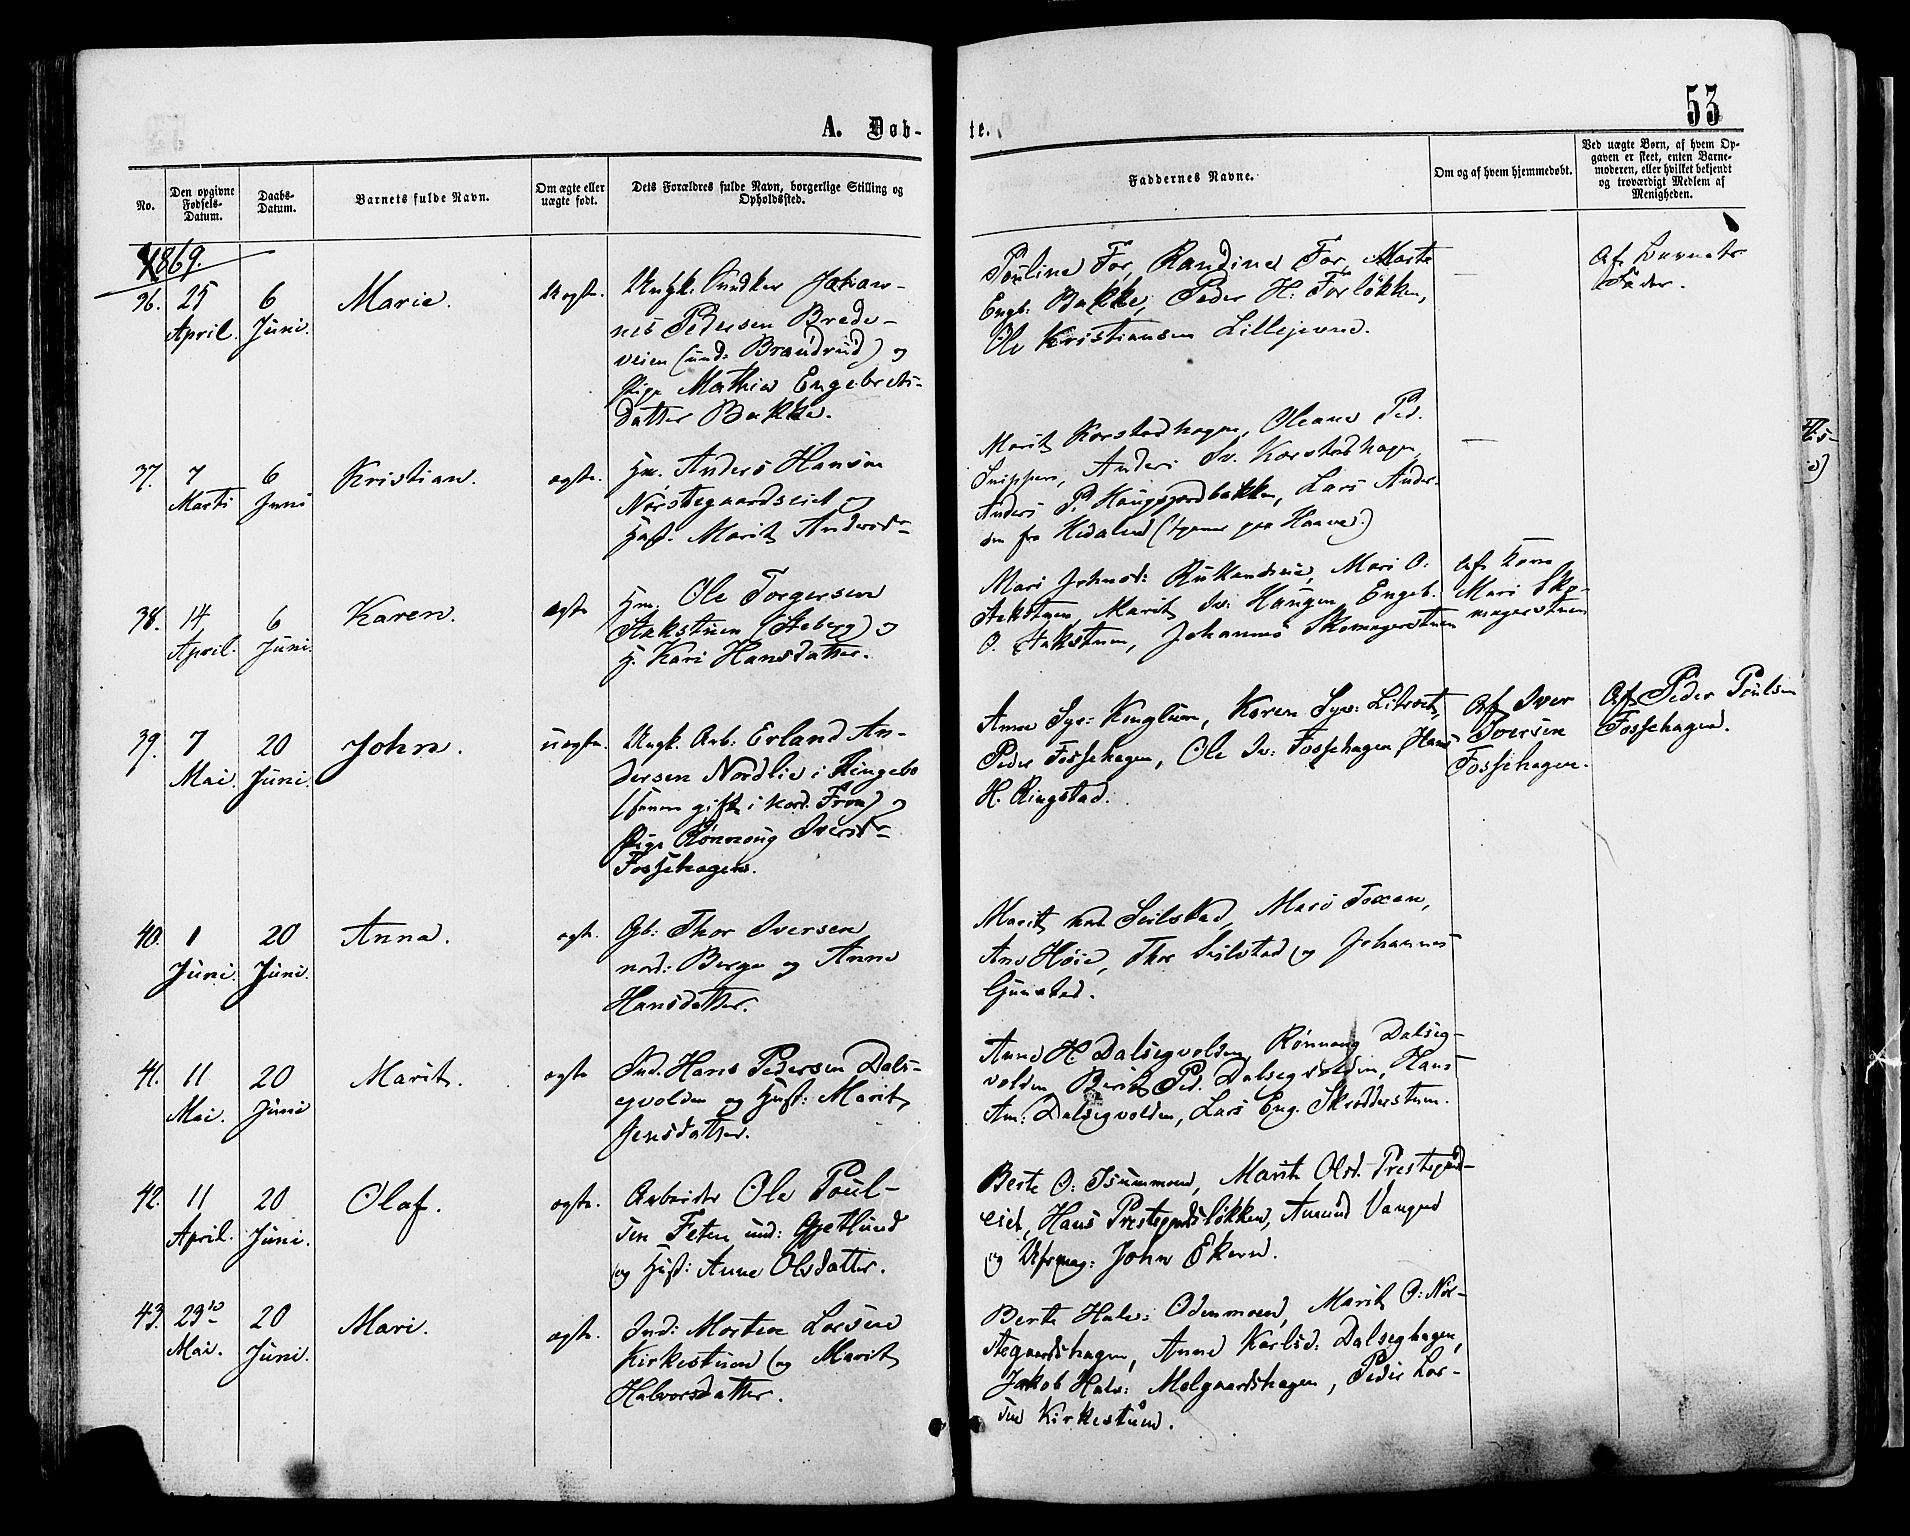 53
A. Døb-
te.
No.
Den opgivne Fødsels-Datum.
Daabs-Datum.
Barnets fulde Navn.
Om ægte eller uægte født.
Dets Forældres fulde Navn, borgerlige Stilling og Opholdssted.
Faddernes Navne.
Om og af hvem hjemmedøbt.
Ved uægte Børn, af hvem Op-
gaven er skeet, enten Barne-
moderen, eller hvilket bekjendt
og troværdigt Medlem af
Menigheden.
1869.
36. 25 April. 6 Juni. Marie. Uægte.
Ungk. Snedker Johan-
nes Pedersen Brede-
veien (und: Brandrud) og
Pige Mathia Engebrets-
datter Bakke.
Pauline For, Randine For, Marte
Engb: Bakke, Peder H. Forløkken,
Ole Kristiansen Lillejevne.
—
Af Barnets
Fader.
37. 7 Marts 6 Juni Kristian. ægte.
Hm. Anders Hansen
Norstegaardseiet og
Hust. Marit Andersdr
Marit Korstadhagen, Oleane Ped.
Snippen, Anders Sv. Korstadhagen
Anders P. Haugsgardbakken, Lars Ander-
sen fra Hedalen (tjener paa Haave.)
—
38. 14 April. 6 Juni. Karen. ægte
Hm. Ole Torgersen
Stakstuen (Steberg) og
H. Kari Hansdatter.
Mari Johnsd: Rukandseie, Mari O.
Stakstuen, Marit Sv: Haugen, Engeb.
O. Stakstuen, Johannes Skomagerstuen
Af Kone
Mari Sko-
magerstuen
39. 7 Mai. 20 Juni. John. uægte.
Ungk. Arb: Erland An-
dersen Nordlie i Ringebo
(senere gift i Nord. Fron) og
Pige Rønnoug Iversdr
Fossehagen.
Anne Syv: Kinglum, Karen Syv: Libroet,
Peder Fossehagen, Ole Iv: Fossehagen, Hans
H. Ringstad.
Af Iver
Iversen
Fossehagen.
Af Peder Poulsen
Fossehagen.
40. 1 Juni. 20 Juni. Anna. ægte.
Gb: Thor Iversen
nord: Berge og Anne
Hansdatter.
Marit nord Seilstad, Mari Toxen,
Ane Høie, Thor Seilstad og Johannes
Gunstad.
41. 11 Mai. 20 Juni Marit. ægte
Ind. Hans Pedersen Dals-
egvolden og Hust: Marit
Jensdatter.
Anne H. Dalsegvolden, Rønnoug Dalseg-
volden, Berit Ped. Dalsegvolden, Hans
Am: Dalsegvolden, Lars Eng. Skrædderstuen.
42. 11 April. 20 Juni. Olaf. ægte.
Arbeider Ole Poul-
sen Feten und: Gjetlund
og Hust: Anne Olsdatter.
Berte O: Isummoen, Marit Olsd. Prestegrd-
eiet, Hans Prestegrdsløkken, Amund Vangen
og Urmag: John Ekern.
43. 29de Mai. 20 Juni. Mari. ægte.
Ind: Morten Larsen
Kirkestuen og Marit
Halvorsdatter.
Berte Halv: Odenmoen, Marit O: Nor-
stegaardshagen, Anne Karlsd: Dalseghagen,
Jakob Halv: Melgaardshagen, Peder Lar-
sen Kirkestuen.